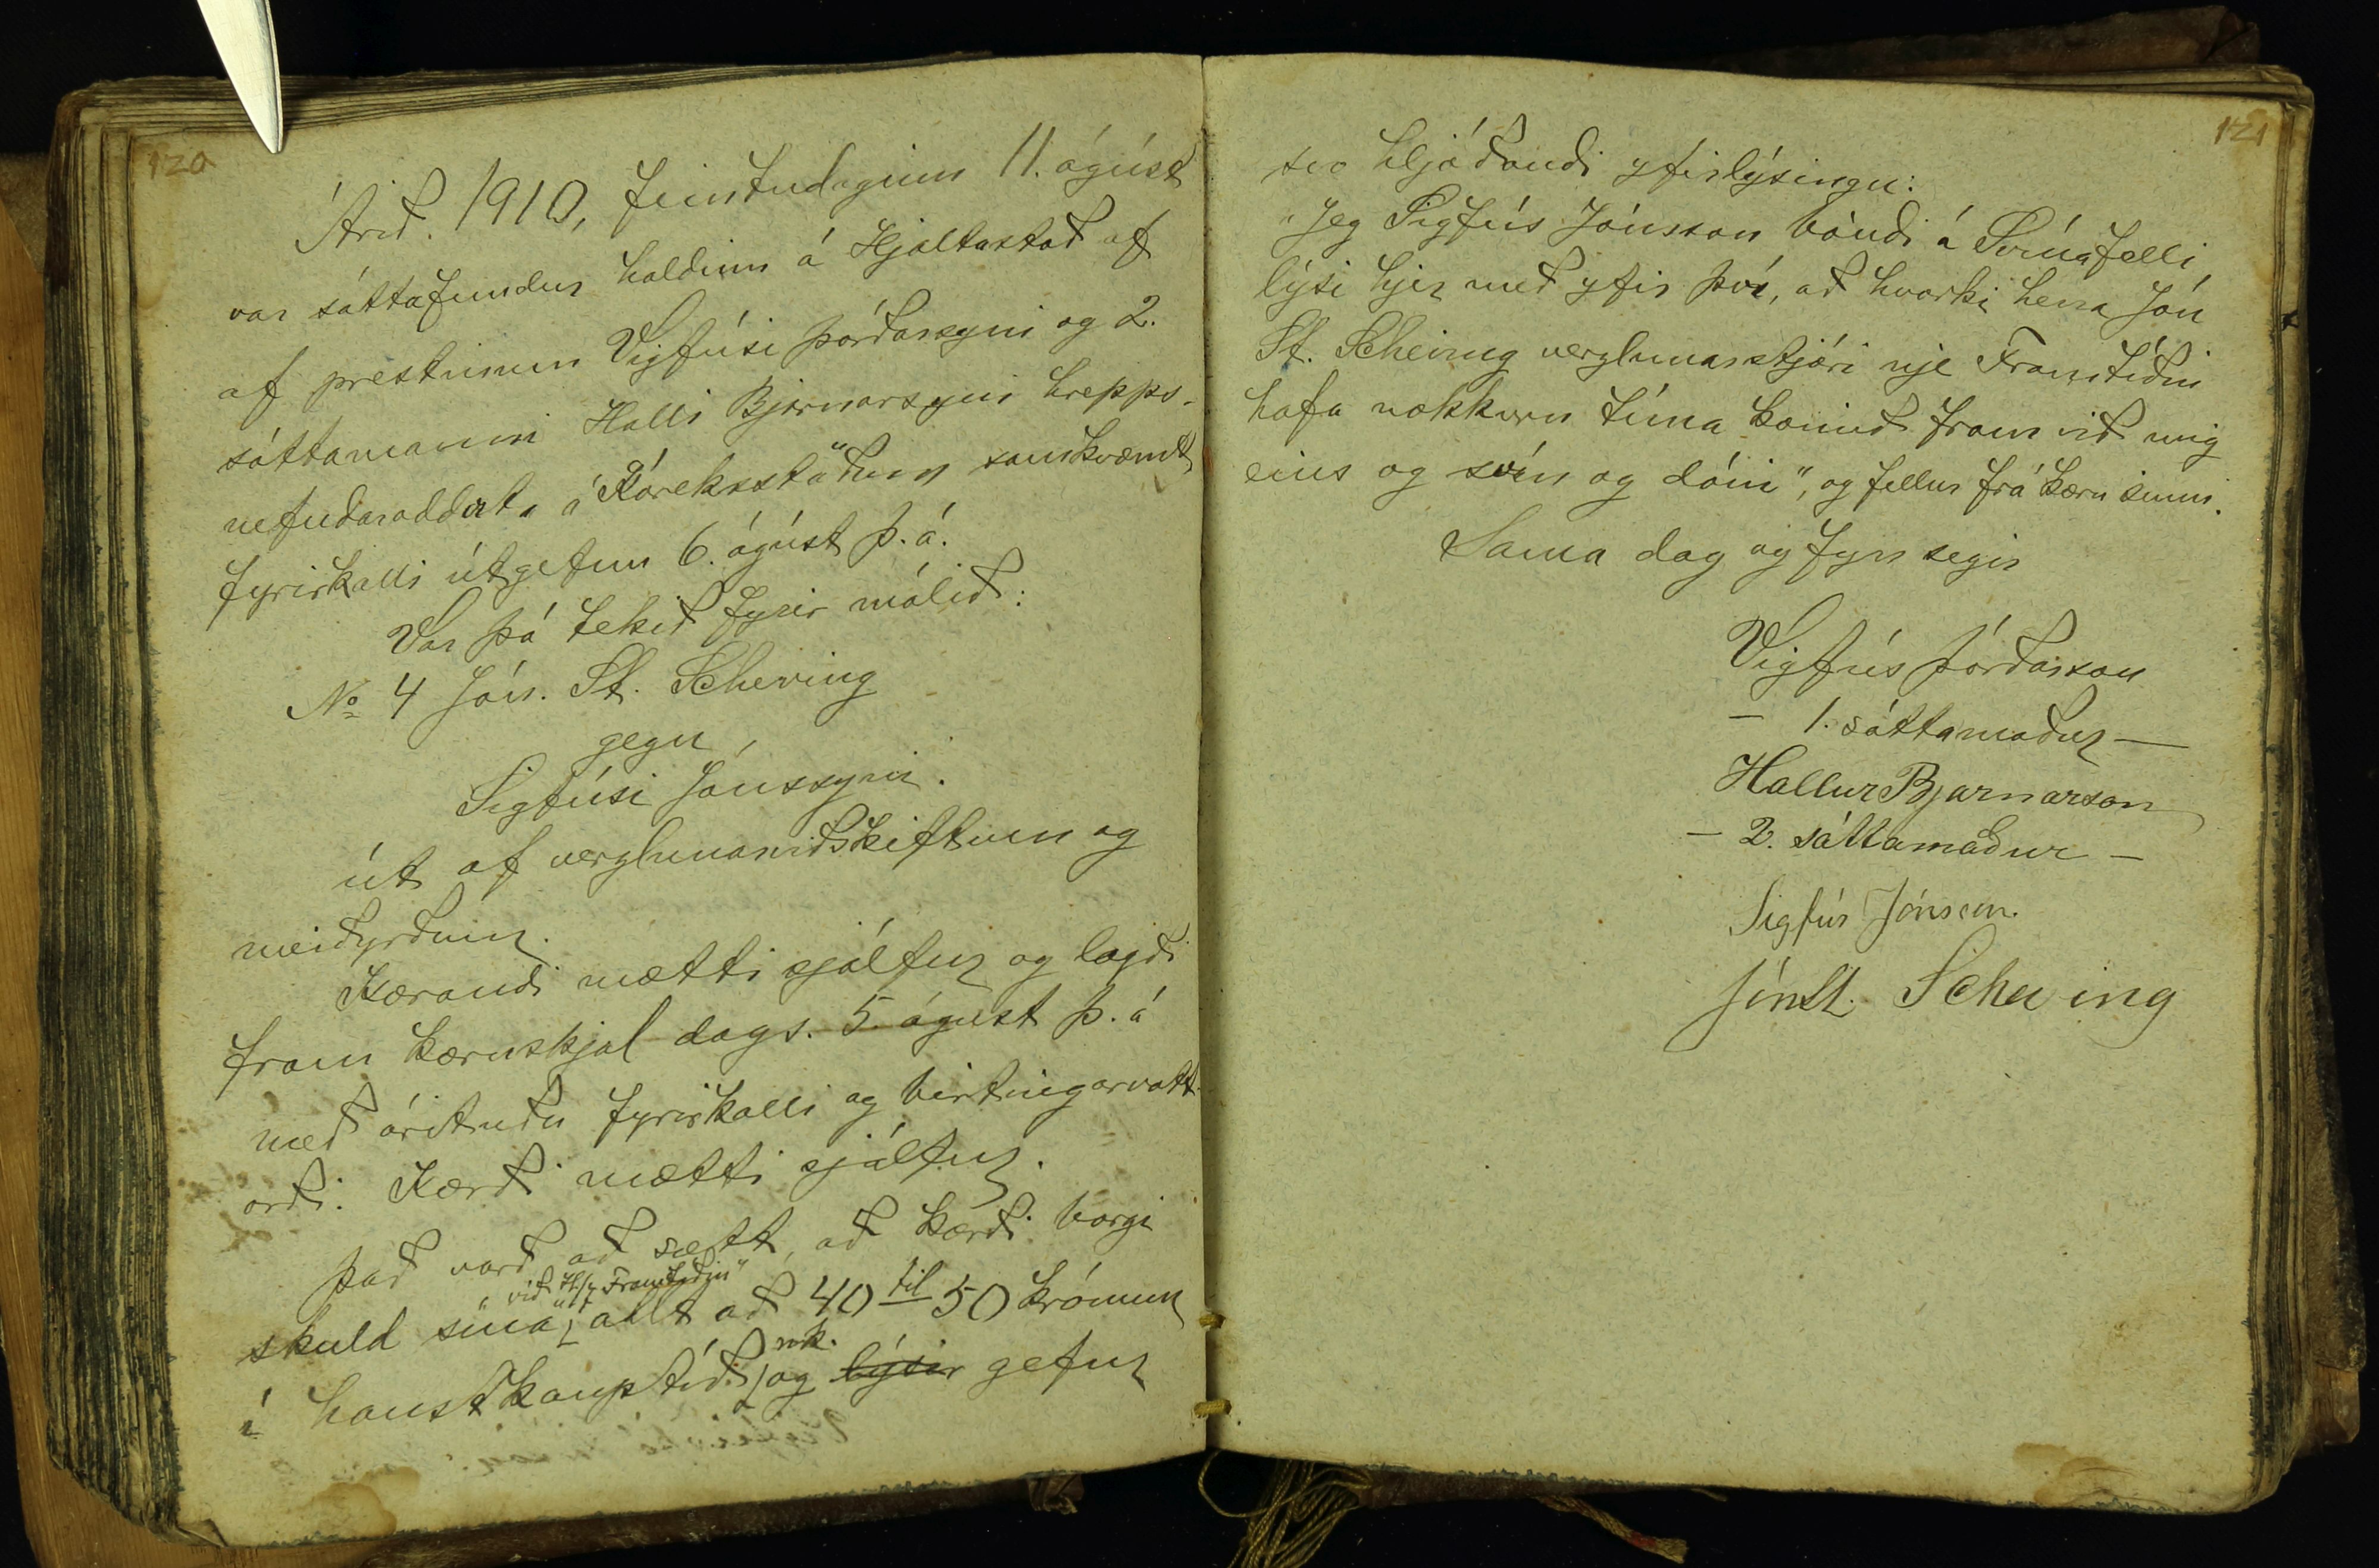 120
Árið 1910, fimtudaginn 11. ágúst
var sáttafundur haldinn á Hjaltastað af
af prestinum Vigfúsi Þórðarsyni og 2.
sáttamanni Halli Bjarnarsyni hrepps-
nefndaroddvita á Kóreksstöðum samkvæmt
fyrirkalli útgefnu 6. ágúst þ. á.
Var þá tekið fyrir málið:
No 4 Jón. St. Scheving
gegn
Sigfúsi Jónssyni.
út af verzlunarviðskiftum og
meiðyrðum.
Kærandi mætti sjálfur og lagði
fram kæruskjal dags. 5. ágúst þ. á
með árituðu fyrirkalli og birtingarvott-
orði. Kærði mætti sjálfur.
Það varð að sætt, að kærði borgi
við H/f Framtíðin"
skuld sína allt að 40 til 50 krónum
í haustkauptíð nk. og lýsir gefur
121
svo hljóðandi yfirlýsingu:
"Jeg Sigfús Jónsson bóndi á Svínafelli
lýsi hjer með yfir því, að hvorki herra Jón
St. Scheving verzlunarstjóri nje Framtíðin
hafa nokkurn tíma komið fram við mig
eins og svín og dóni", og fellur frá kæru sinni.
Sama dag og fyr segir
Vigfús Þórðarson
- 1. sáttamaður -
Hallur Bjarnarson
- 2. sáttamaður -
Sigfús Jónsson.
Jón St. Scheving